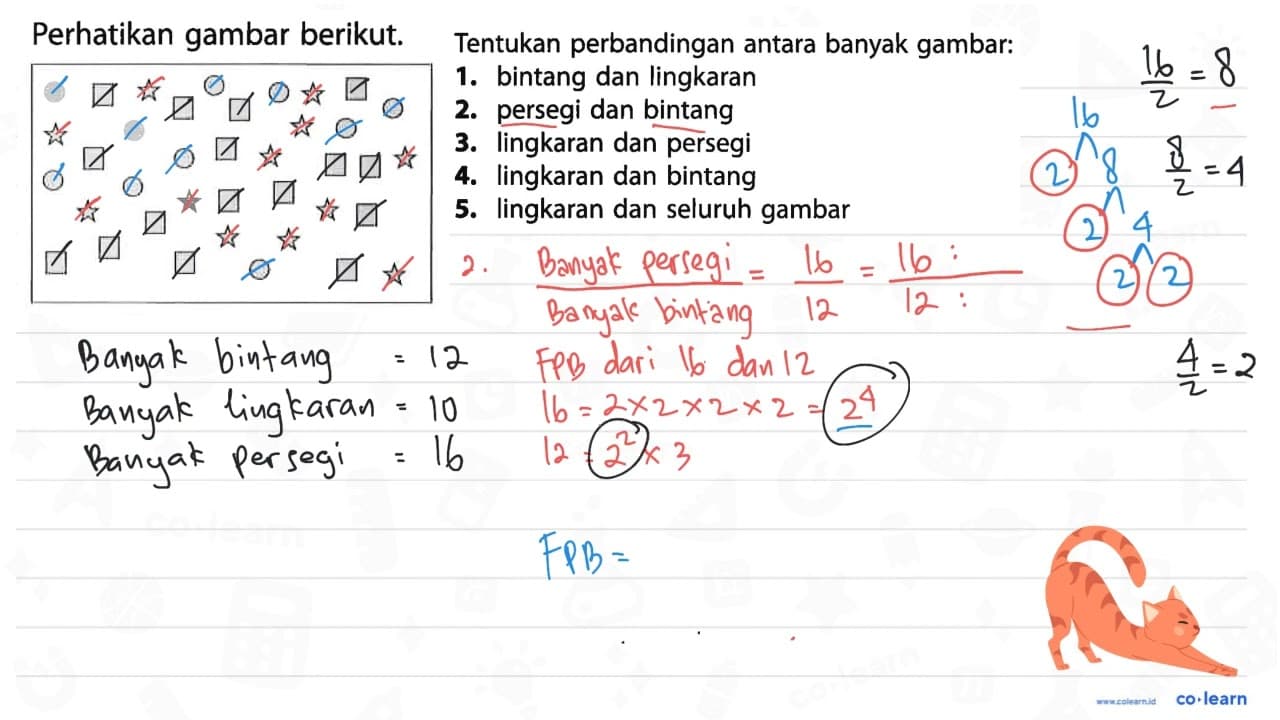 Perhatikan gambar berikut.
Tentukan perbandingan antara banyak gambar:
1. bintang dan lingkaran
2. persegi dan bintang
3. lingkaran dan persegi
4. lingkaran dan bintang
5. lingkaran dan seluruh gambar
16/2 = 8
16
2 8
8/2 = 4
2 4
2 2
4/2 = 2
2. Banyak persegi / Banyak bintang = 16/12 = 16 : / 12 :
Banyak bintang = 12
Banyak lingkaran = 10
Banyak persegi = 16
FPB dari 16 dan 12
16 = 2 × 2 × 2 × 2 = 2⁴
12 = 2² × 3
FPB =
www.colearn.id
co·learn